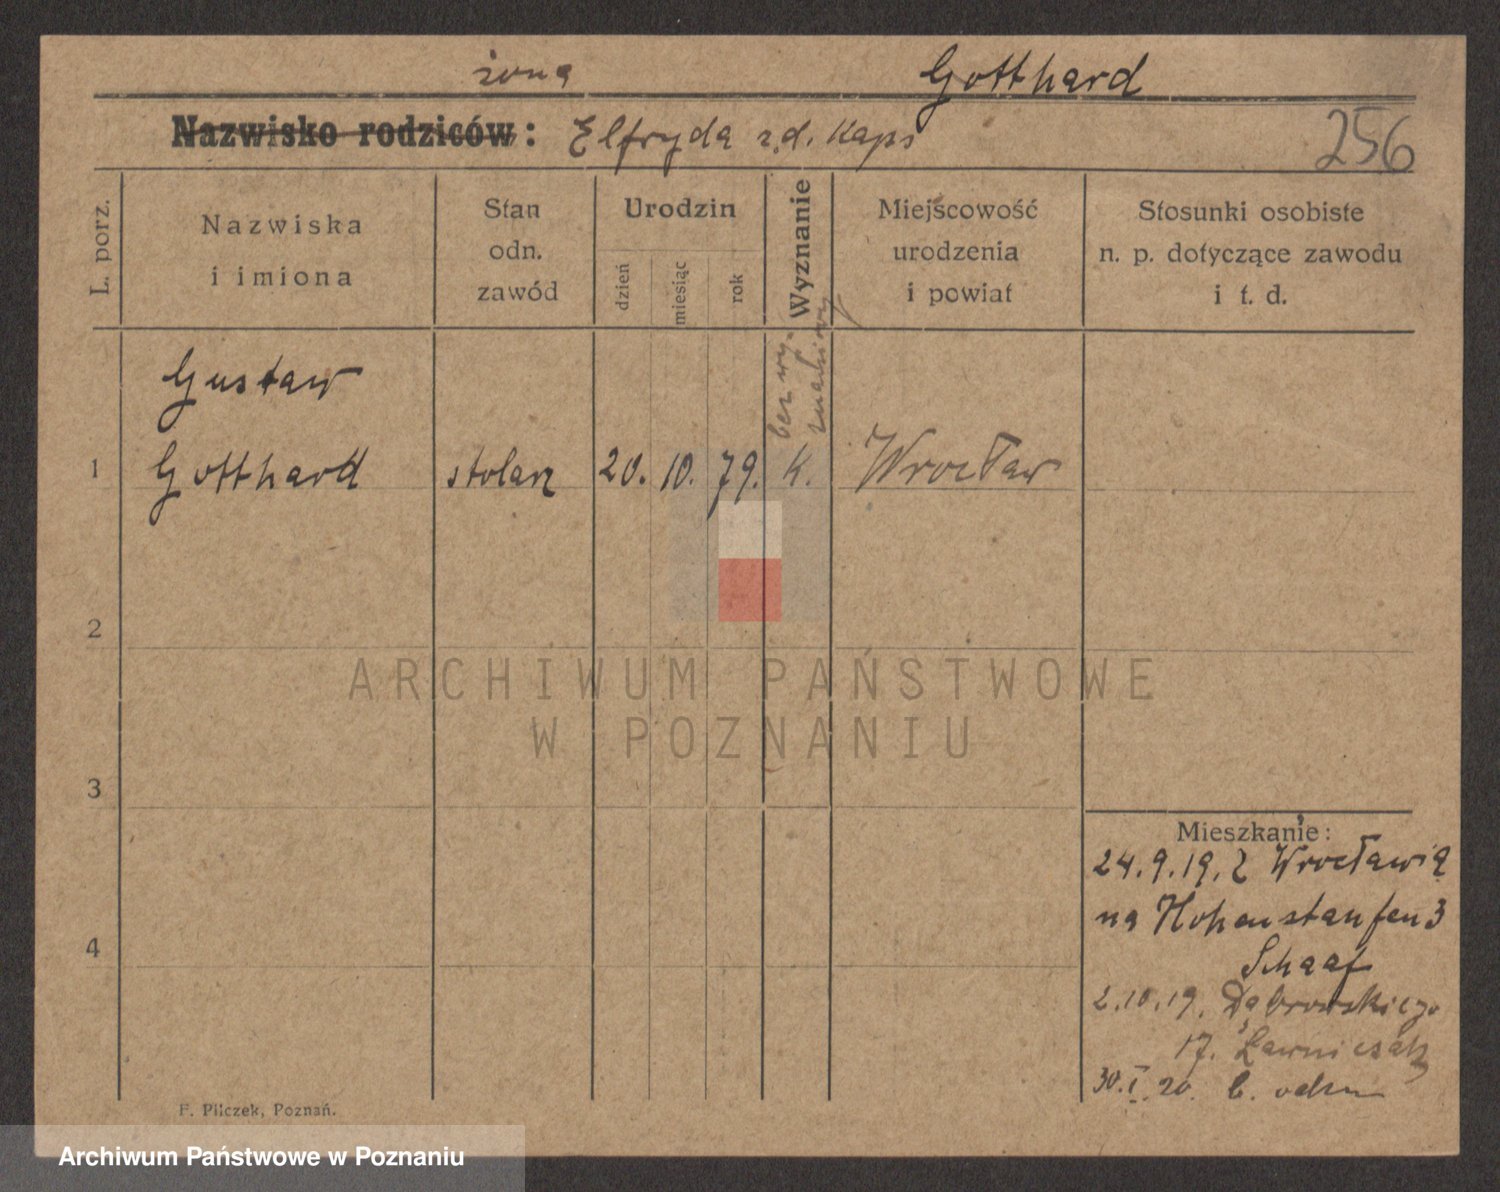 żona Gotthard
Nazwisko rodziców: Elfryda z.d. Kaps
256
L. porz.
Nazwiska
i imiona
Stan
odn.
zawód
Urodzin
dzień
miesiąc
rok
Wyznanie
Miejscowość
urodzenia
i powiat
Stosunki osobiste
n. p. dotyczące zawodu
i t. d.
bez wy-
Gustaw
1 Gotthard stolarz 20. 10. 79. K. Wrocław
2
3
4
Mieszkanie:
24.9.19. z Wrocławia
na Hohenstaufen 3
Schaaf
2.10.19. Dąbrowskiego
17. Ławniczak
30.I.20. b. odm
F. Pilczek, Poznań.
ARCHIWUM PAŃSTWOWE
W POZNANIU
Archiwum Państwowe w Poznaniu